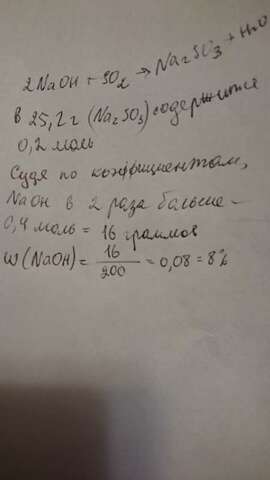 2NaOH + SO2 → Na2SO3 + H2O
В 25,2 г (Na2SO3) содержится
0,2 моль
Судя по коэффициентам,
NaOH в 2 раза больше -
0,4 моль = 16 граммов
W(NaOH) = 16/200 = 0,08 = 8%